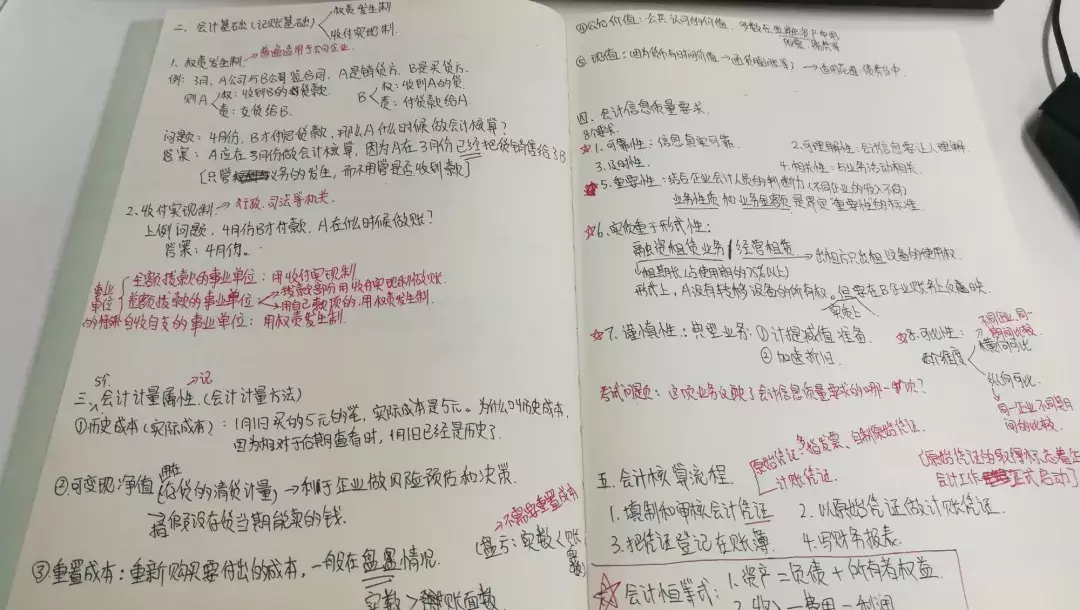 二、会计基础(记账基础) 权责发生制
收付实现制
1. 权责发生制 → 普遍适用于公司企业
例: 3月, A公司与B公司签合同, A是销货方, B是买货方.
则A 权: 收到B的货款 B 权: 收到A的货
责: 交货给B. 责: 付货款给A.
问题: 4月份, B才付完货款, 那么A什么时候做会计核算?
答案: A应在3月份做会计核算, 因为A在3月份已经把货销售给了B
[只管义务的发生, 而不用管是否收到款]
2. 收付实现制 → 行政、司法等机关.
上例问题, 4月份B才付款, A在什么时候做账?
答案: 4月份.
事业单位的
全额拨款的事业单位: 用收付实现制
差额拨款的事业单位 拨款部分用收付实现制做账.
用自己款项的, 用权责发生制.
自收自支的事业单位: 用权责发生制.
5个. → 记
三、会计计量属性. (会计计量方法)
①历史成本(实际成本): 1月1日买的5元的笔, 实际成本是5元. 为什么叫历史成本,
因为相对于后期查看时, 1月1日已经是历史了.
用在
②可变现净值(存货的清货计量) → 利于企业做风险预估和决策.
指假设存货当期能卖的钱.
→ 不需要重置成本
(盘亏: 实数<账面数)
③重置成本: 重新购买要付出的成本, 一般在盘盈情况.
实数>账面数
④公允价值: 公共认可的价值.
⑤现值:
四、会计信息质量要求.
8个要求.
☆1. 可靠性: 信息真实可靠. 2. 可理解性: 会计信息要让人理解.
3. 及时性. 4. 相关性: 与业务活动相关.
☆5. 重要性: 结合企业会计人员的判断力(不同企业的收入不同)
业务性质和业务金额是界定重要性的标准.
☆6. 实质重于形式性:
融资租赁业务/经营租赁 → 出租方只出租设备的使用权.
租期长(占使用期的75%以上)
形式上, A没有转移设备的所有权. 但要在B企业账务上反映.
实质上
☆7. 谨慎性: 典型业务: ①计提减值准备.
②加速折旧.
☆8. 可比性:
不同企业, 同一期间比较.
横向可比
纵向可比.
同一企业不同期间的比较.
考试问题: 这项业务反映了会计信息质量要求的哪一项?
原始凭证: 指发票、自制原始凭证.
记账凭证.
五、会计核算流程.
(原始凭证的取得标志着会计工作正式启动)
1. 填制和审核会计凭证 2. 以原始凭证做记账凭证.
3. 把凭证登记在账簿. 4. 写财务报表.
☆会计恒等式: 1. 资产=负债+所有者权益.
2. 收入-费用=利润